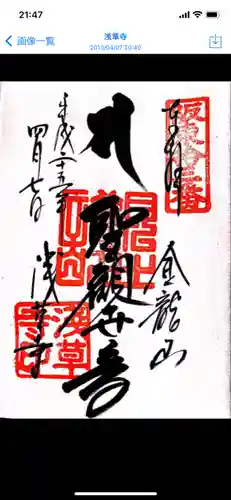 21:47
画像一覧
浅草寺
2013/04/07 20:40
坂東拾三番
奉拝
聖観世音
金龍山
浅草寺
平成二十五年
四月七日
浅草寺